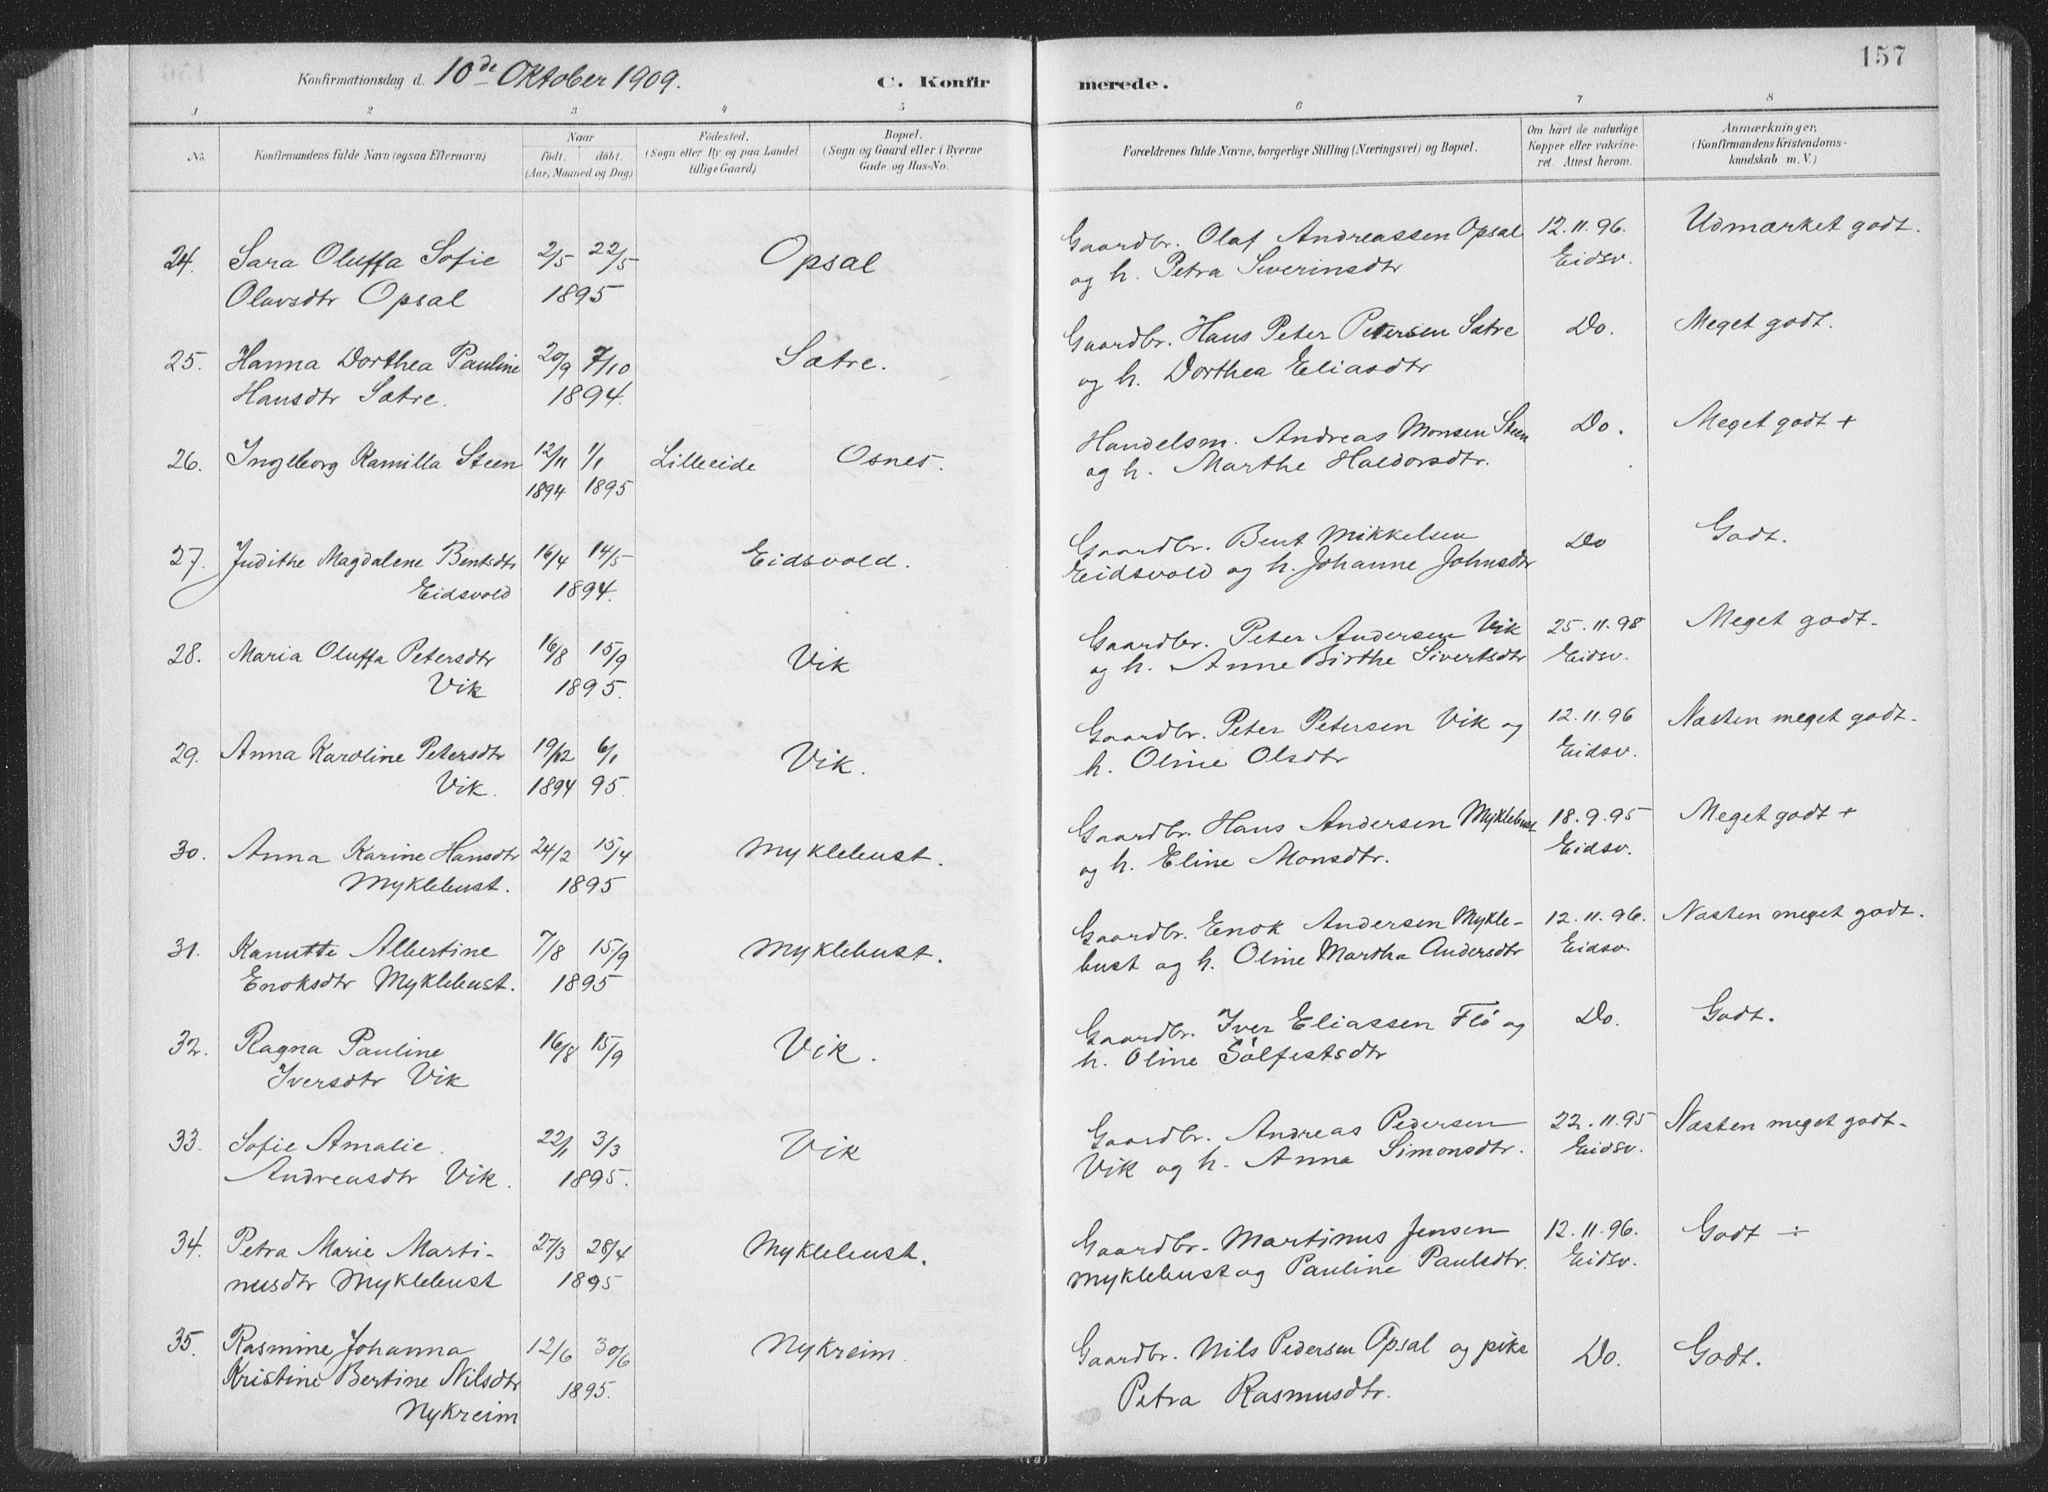 157
Konfirmationsdag d. 10de Oktober 1909.
C. Konfirmerede.
1 2 3 4 5 6 7 8
No.
Konfirmandens fulde Navn (ogsaa Efternavn)
Naar
födt. döbt.
(Aar, Maaned og Dag)
Födested.
(Sogn eller By og paa Landet
tillige Gaard)
Bopæl.
(Sogn og Gaard eller i Byerne
Gade og Hus-No.
Forældrenes fulde Navne, borgerlige Stilling (Næringsvei) og Bopæl.
Om havt de naturlige
Kopper eller vakcine-
ret. Attest herom.
Anmærkninger.
(Konfirmandens Kristendoms-
kundskab m. V.)
24. Sara Oluffa Sofie 2/5 22/5 Opsal Gaardbr. Olaf Andreassen Opsal 12.11.96. Udmærket godt.
Olavsdtr Opsal 1895 og h. Petra Severinsdtr Eidsv.
25. Hanna Dorthea Pauline 20/9 7/10 Sætre. Gaardbr. Hans Peter Petersen Sætre Do. Meget godt.
Hansdtr Sætre. 1894. og h. Dorthea Eliasdtr
26. Ingeborg Kamilla Steen 12/11 1/1 Lilleeide Osnes. Handelsm. Andreas Monsen Steen Do. Meget godt +
1894 1895 og h. Marthe Haldorsdtr.
27. Judithe Magdalene Bentsdtr 16/4 14/5 Eidsvold. Gaardbr. Bent Mikkelsen Do Godt.
Eidsvold 1894. Eidsvold og h. Johanne Johnsdtr
28. Maria Oluffa Petersdtr 16/8 15/9 Vik Gaardbr. Peter Andersen Vik 25.11.98 Meget godt.
Vik 1895. og h. Anne Birthe Sivertsdtr Eidsv.
29. Anna Karoline Petersdtr 19/12 6/1 Vik. Gaardbr. Peter Petersen Vik og 12.11.96 Næsten meget godt.
Vik. 1894 95. h. Oline Olsdtr Eidsv.
30. Anna Karine Hansdtr 24/2 15/4 Myklebust. Gaardbr. Hans Andersen Myklebust 18.9.95 Meget godt +
Myklebust. 1895 og h. Eline Monsdtr. Eidsv.
31. Kanutte Albertine 7/8 15/9 Myklebust. Gaardbr. Enok Andersen Mykle- 12.11.96. Næsten meget godt.
Enoksdtr Myklebust. 1895 bust og h. Oline Martha Andersdtr Eidsv.
32. Ragna Pauline 16/8 15/9 Vik. Gaardbr. Iver Eliassen Flö og Do. Godt.
Iversdtr Vik h. Oline Sölfestsdtr
33. Sofie Amalie. 22/1 3/3 Vik Gaardbr. Andreas Pedersen 22.11.95 Næsten meget godt.
Andreasdtr Vik. 1895. Vik og h. Anna Simonsdtr. Eidsv.
34. Petra Marie Marti- 27/3 28/4 Myklebust. Gaardbr. Martinus Jensen 12.11.96. Godt ÷
nusdtr Myklebust 1895 Myklebust og Pauline Paulsdtr. Eidsv.
35. Rasmine Johanna 12/6 30/6 Nykreim. Gaardbr. Nils Pedersen Opsal og pike Do. Godt.
Kristine Bertine Nilsdtr 1895. Petra Rasmusdtr.
Nykreim